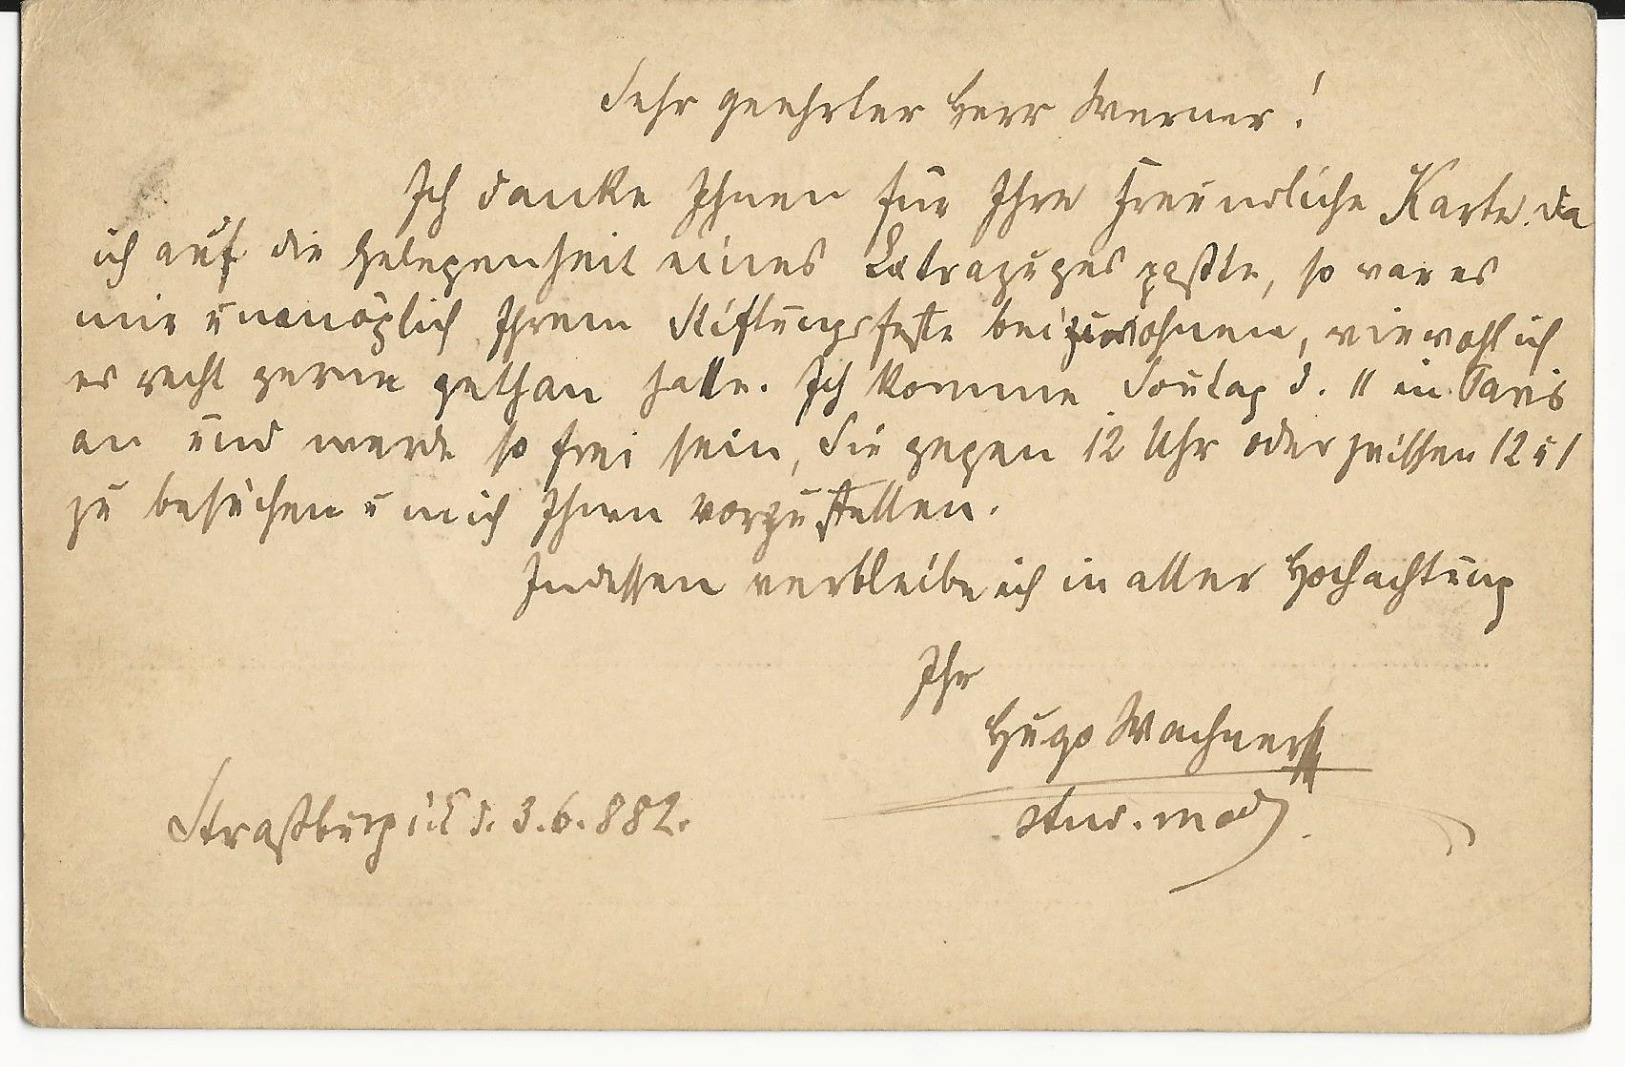 Sehr geehrter Herr Werner!
Ich danke Ihnen für Ihre freundliche Karte. Da
ich auf die Gelegenheit eines Extrazuges paßte, so war es
mir unmöglich Ihrem Stiftungsfeste beizuwohnen, wiewohl ich
es recht gerne gethan hätte. Ich komme Sontag d. 11 in Paris
an und werde so frei sein, Sie gegen 12 Uhr oder zwischen 12 u 1
zu besuchen u mich Ihnen vorzustellen.
Indessen verbleibe ich in aller Hochachtung
Ihr
Hugo Wachner
Straßburg i. E d. 3.6.882.
stud. med.